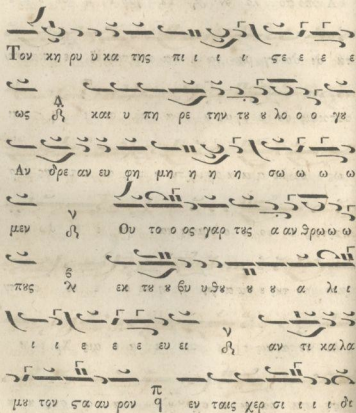 Τον κη ρυ υ κα της πι ι ι ι ςε ε ε ε
ως και υ πη ρε την τȣ ȣ λο ο ο γȣ
Αν δρε αν ευ φη μη η η η σω ω ω ω
μεν Ου το ο ος γαρ τȣς α αν θρω ω ω
πȣς εκ τȣ ȣ βυ υ θȣ ȣ ȣ ȣ α λι ι
ι ι ε ε ε ευ ει αν τι κα λα
μȣ τον ςα αυ ρον εν ταις χερ σι ι ι ι δι